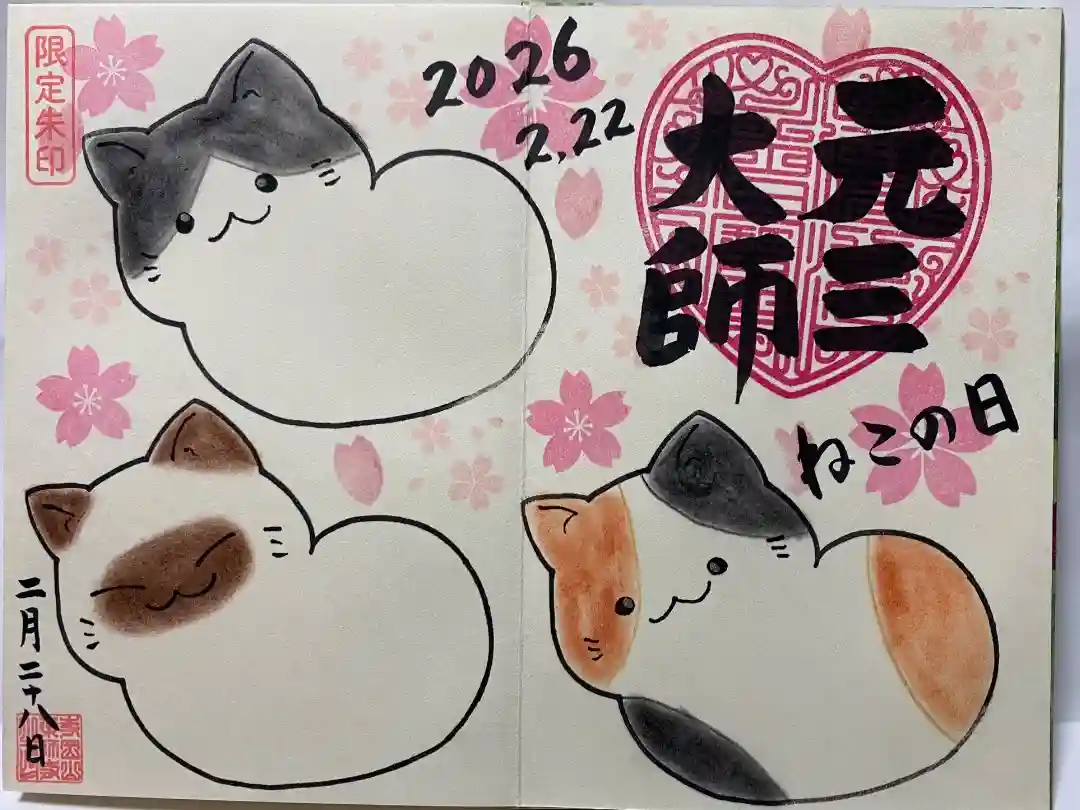 限定朱印
2026
2.22
元三
大師
ねこの日
二月二十八日